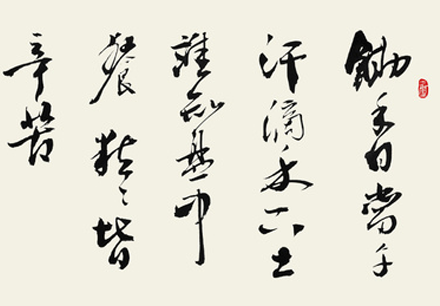 锄禾日当午
汗滴禾下土
谁知盘中
餐粒粒皆
辛苦